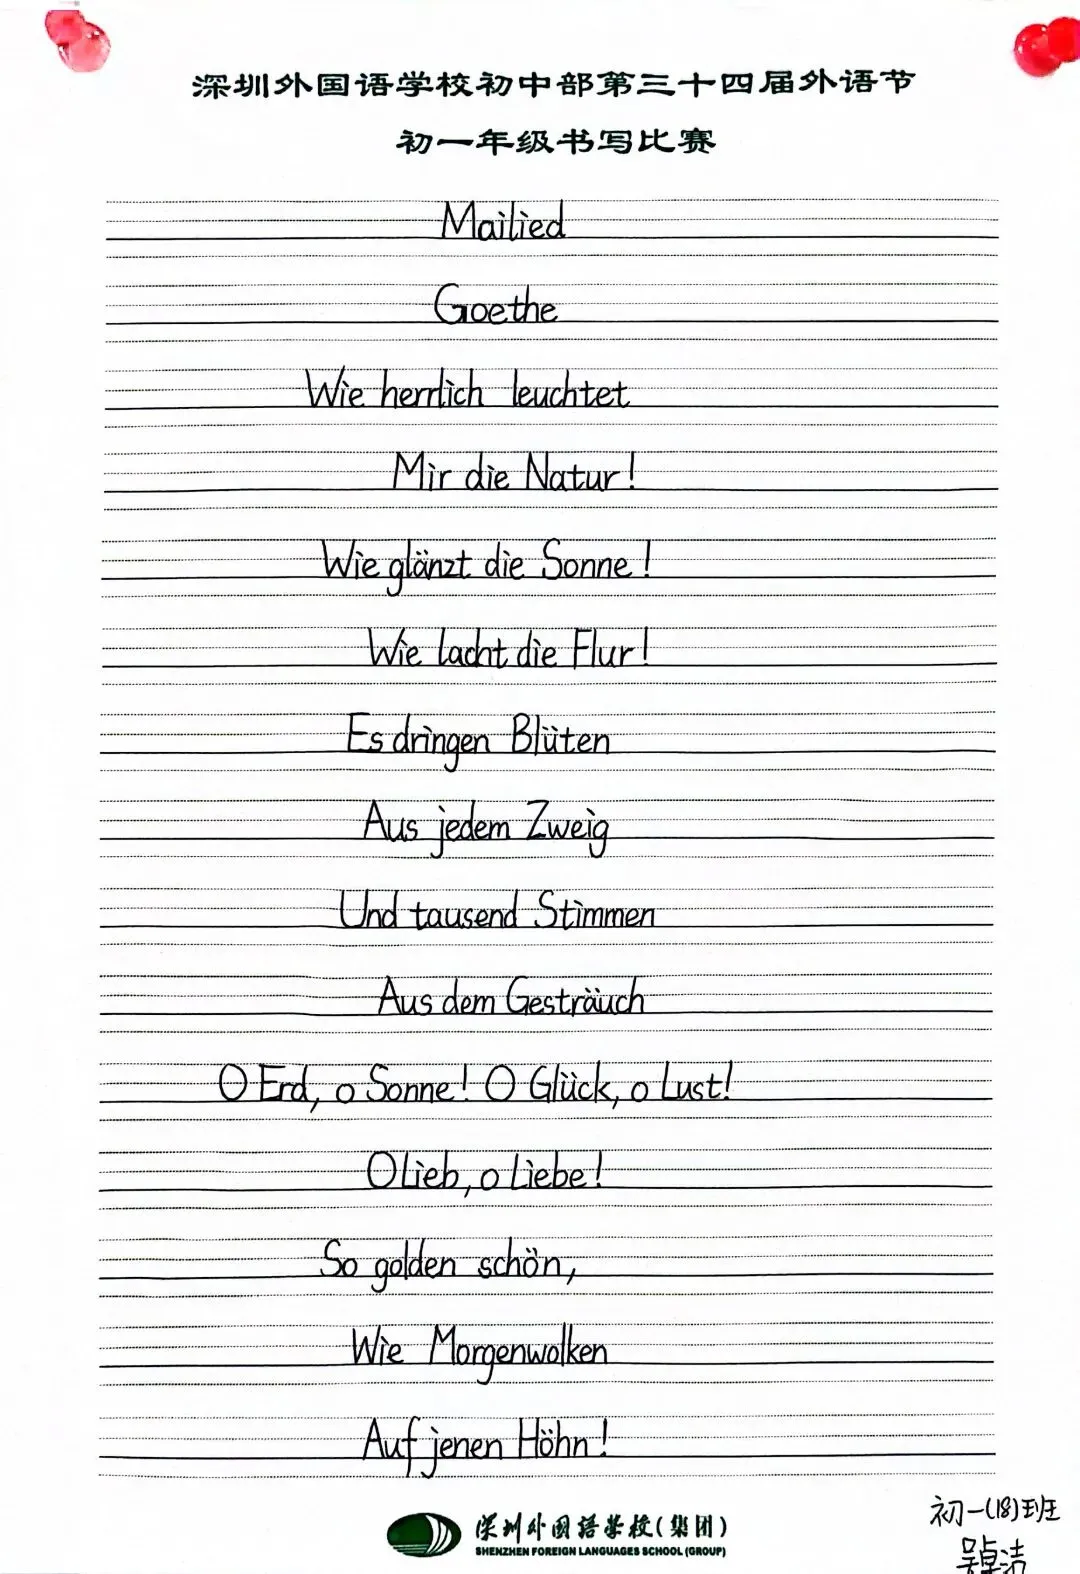 深圳外国语学校初中部第三十四届外语节
初一年级书写比赛
Mailied
Goethe
Wie herrlich leuchtet
Mir die Natur!
Wie glänzt die Sonne!
Wie lacht die Flur!
Es dringen Blüten
Aus jedem Zweig
Und tausend Stimmen
Aus dem Gesträuch
O Erd, o Sonne! O Glück, o Lust!
O Lieb, o Liebe!
So golden schön,
Wie Morgenwolken
Auf jenen Höhn!
深圳外国语学校(集团)
SHENZHEN FOREIGN LANGUAGES SCHOOL (GROUP)
初一(18)班
吴卓洁